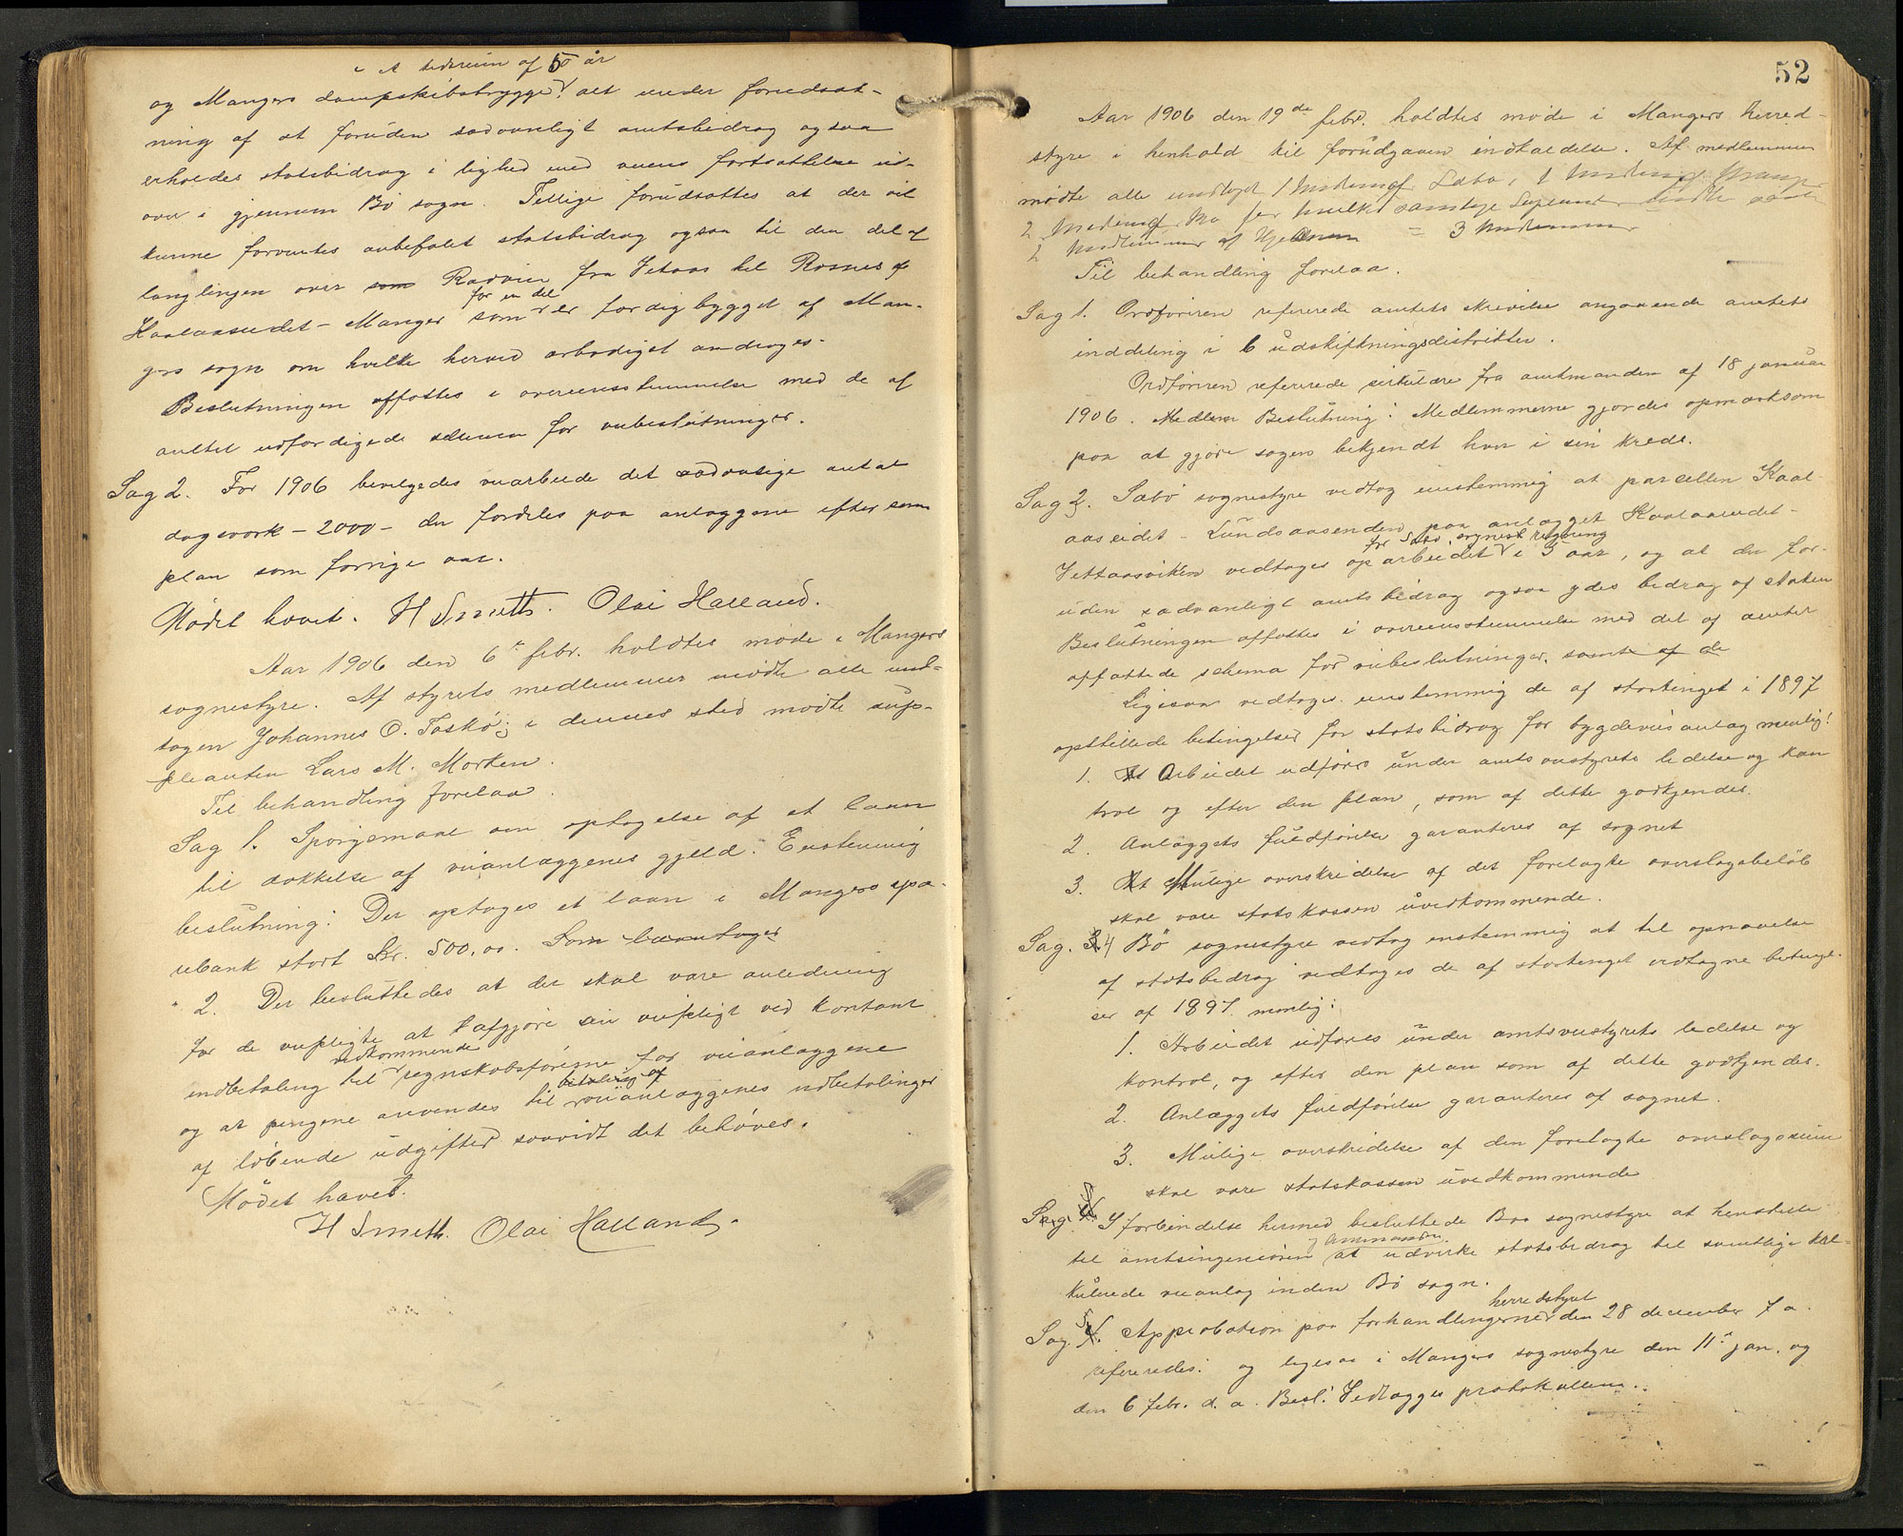 i et tidsrum af 5 år
og Mangers dampskibsbrygge alt under forudsæt-
ning af at foruden sædvanligt amtsbidrag ogsaa
erholdes statsbidrag i lighed med veiens fortsættelse ud-
over i gjennem Bö sogn. Tillige forudsættes at der vil
kunne forventes anbefalet statsbidrag ogsaa til den del af
langlinjen over som Radöien fra Vetaas til Rosnes
Haalaasundet - Manger som for en del er færdigbygget af Man-
gers sogn om hvilke herved ærbödigst andrages.
Beslutningen affattes i overensstemmelse med de af
amtet udfærdigede schema for veibeslutninger.
Sag 2. For 1906 bevilgedes veiarbeide det sædvanlige antal
dagsverk - 2000 - der fordeles paa anlæggene efter samme
plan som forrige aar.
Mødet hævet. H Smith. Olai Halland.
Aar 1906 den 6te febr. holdtes møde i Mangers
sognestyre. Af styrets medlemmer mödte alle und-
tagen Johannes O. Toskö; i dennes sted mødte sup-
pleanten Lars M. Morken.
Til behandling forelaa.
Sag 1. Spörgsmaal om optagelse af et laan
til dækkelse af veianlæggenes gjeld. Enstemmig
beslutning: Der optages et laan i Mangers spa-
rebank stort Kr. 500,00. Som
" 2. Der besluttedes at der skal være anledning
for de veipligtige at afgjöre sin veipligt ved kontant
indbetaling til vedkommende regnskabsförerne for veianlæggene
og at pengene anvendes til betaling af veianlæggenes udbetalinger
af löbende udgifter saavidt det behöves.
Mödet hævet.
H Smith. Olai Halland.
52
Aar 1906 den 19de febr. holdtes møde i Mangers herred-
styre i henhold til forudgaaen indkaldelse. Af medlemmer
mødte alle undtaget 1 medlem af Sæbö, 1 medlem af Manger
2 medlem af Bö for hvilke samtlige suplanter mödte samt
2 medlemmer af Hjelmen = 3 medlemmer
Til behandling forelaa.
Sag 1. Ordföreren refererede amtets skrivelse angaaende amtets
inddeling i 6 udskiftningsdistrikter.
Ordföreren refererede sirkulære fra amtmanden af 18 januar
1906. Beslutning: Medlemmerne gjordes opmærksom
paa at gjöre sagen bekjendt hver i sin kreds.
Sag 2. Sæbö sognestyre vedtog enstemmig at parcellen Kaal-
aaseidet - Lundsaasenden paa anlægget Haalaasundet -
Vettaasviken vedtages oparbeidet for Sæbö sogns regning i 5 aar, og at der for-
uden sædvanligt amtsbidrag ogsaa ydes bidrag af staten
Beslutningen affattes i overensstemmelse med det af amtet
affattede schema for veibeslutninger, samt af de
Ligesaa vedtages enstemmig de af stortinget i 1897
opstillede betingelser for statsbidrag for bygdeveisanlæg nemlig:
1. At Arbeidet udföres under amtsveistyrets ledelse og kon
trol og efter den plan, som af dette godkjendes.
2. Anlæggets fuldförelse garanteres af sognet
3. At Mulige overskridelse af det forelagte overslagsbelöb
skal være statskassen uvedkommende.
Sag. 4 Bö sognestyre vedtog enstemmig at til opnaaelse
af statsbidrag vedtages de af stortinget vedtagne betingel-
ser af 1897 nemlig:
1. Arbeidet udföres under amtsveistyrets ledelse og
kontrol, og efter den plan som af dette godkjendes.
2. Anlæggets fuldförelse garanteres af sognet.
3. Mulige overskridelse af den forelagte overslagssum
skal være statskassen uvedkommende
Sag. I forbindelse hermed besluttede Bö sognestyre at henstille
til amtsingeniören og Amtmanden at udvirke statsbidrag til samtlige kal-
kulerede veianlæg inden Bö sogn.
Sag 5. Approbation paa forhandlingerne herredstyret den 28 december f. a.
refereredes: og ligesaa i Mangers sognestyre den 11te jan. og
den 6 febr. d. a. Besl: Vedlægges protokollen.